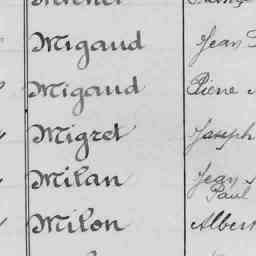 Migaud Jean
Migaud
Migret Joseph
Milan Jean
Paul
Milon Albert